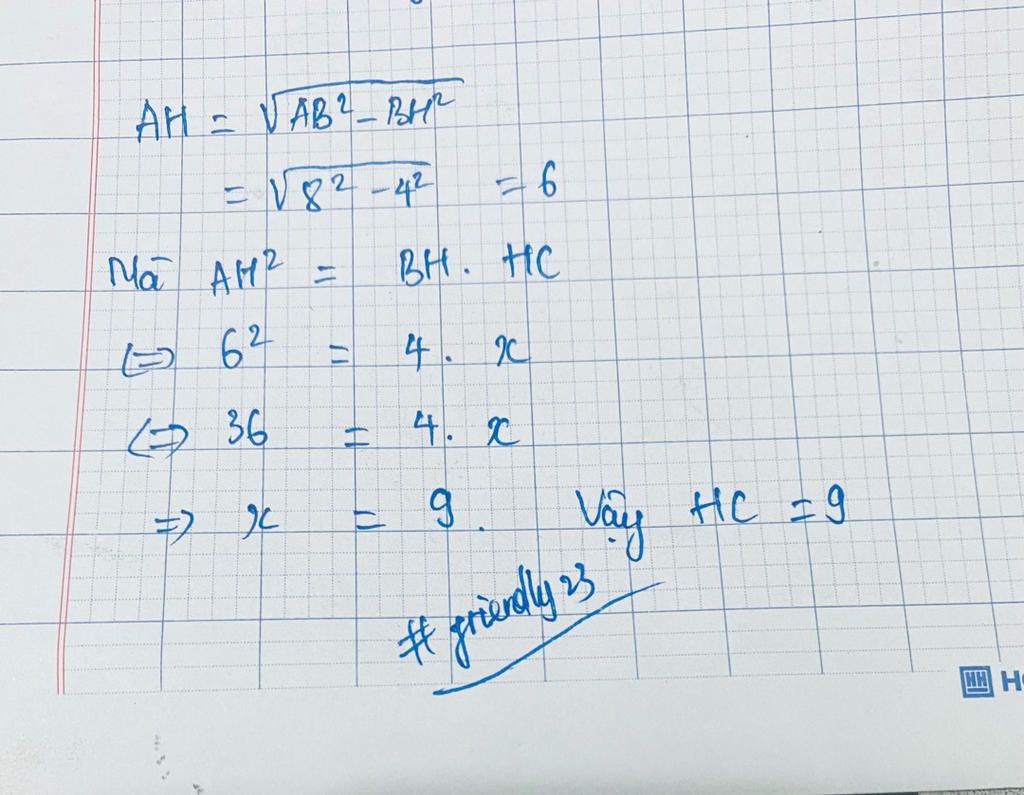 AH = √AB² - BH²
= √8² - 4² = 6
Mà AH² = BH . HC
<=> 6² = 4 . x
<=> 36 = 4 . x
=> x = 9 . Vậy HC = 9
# friendly 23
HH